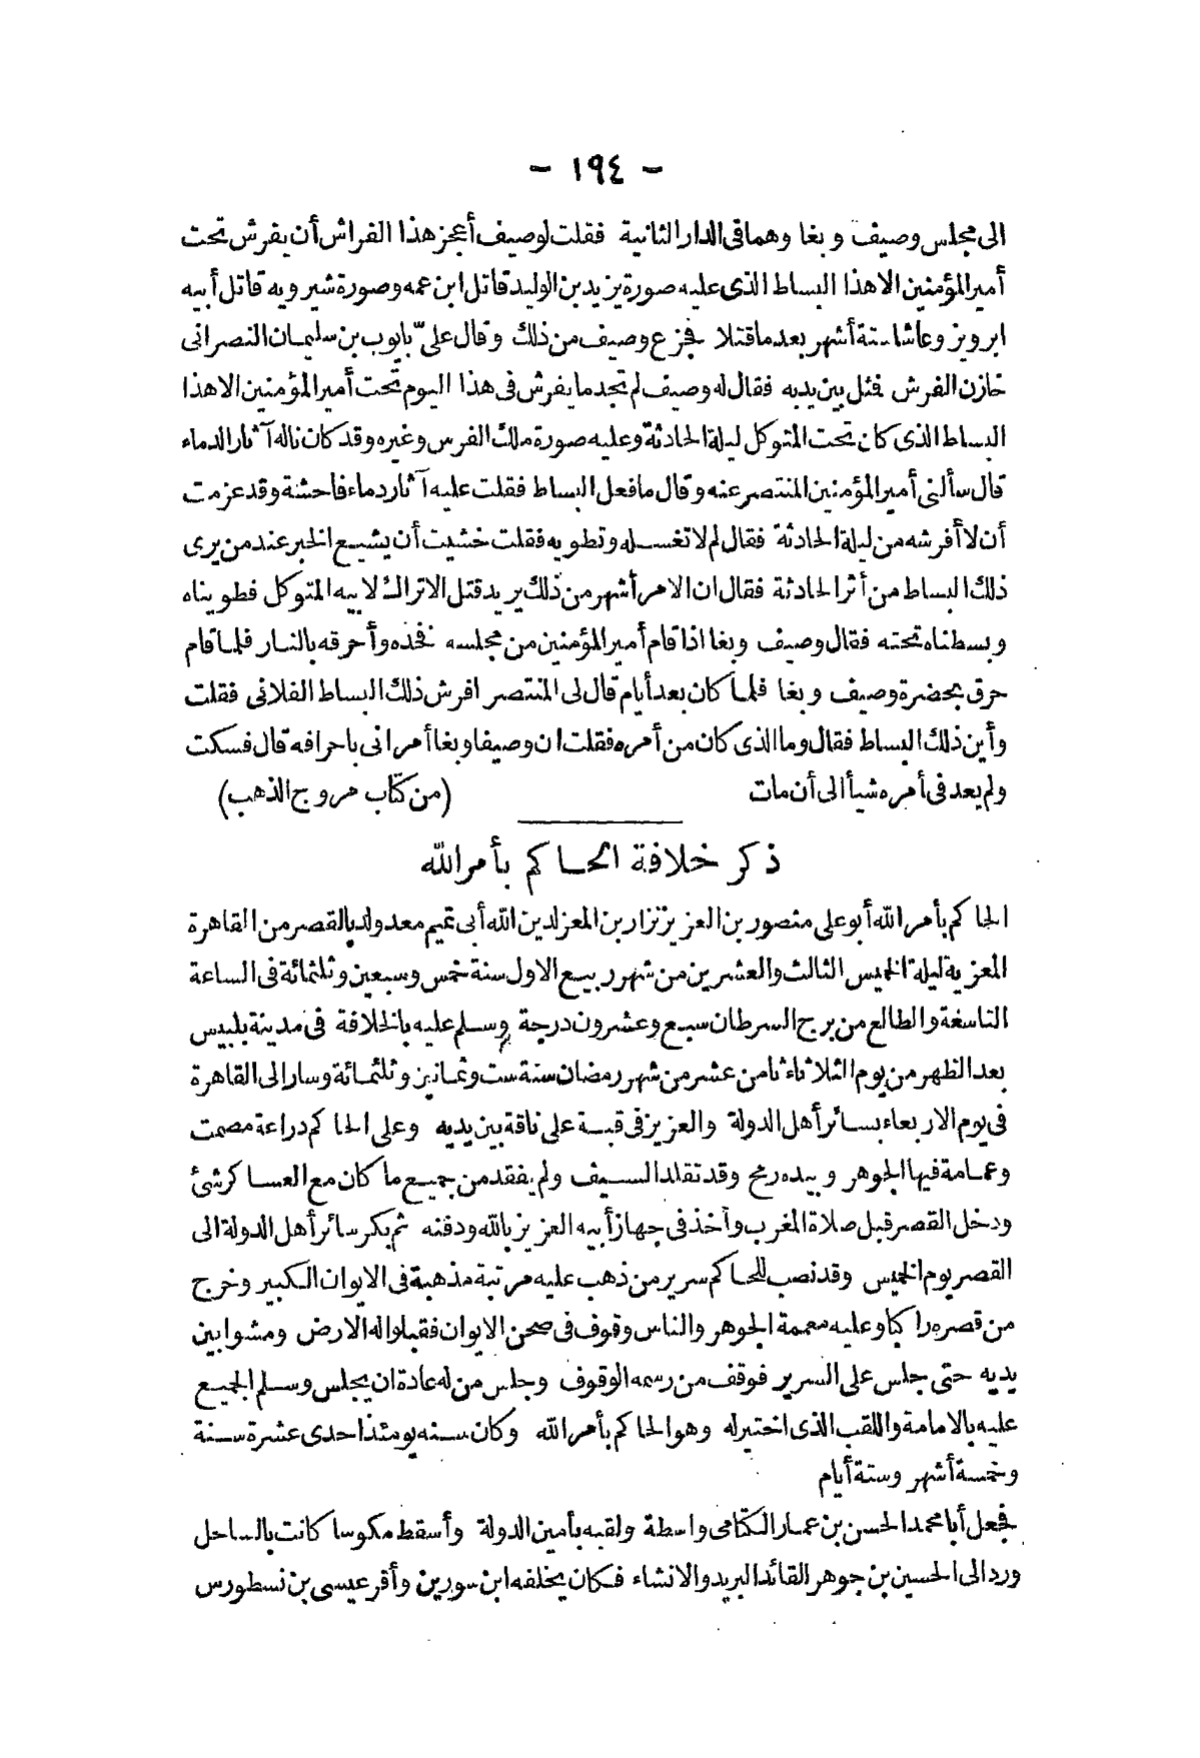 - ١٩٤ -
الى مجلس وصيف وبغا وهما فى الدار الثانية فقلت لوصيف أعجز هذا الفراش أن يفرش تحت
أمير المؤمنين الا هذا البساط الذى عليه صورة يزيد بن الوليد قاتل ابن عمه وصورة شيرويه قاتل أبيه
ابرويز وعاشا ستة أشهر بعد ما قتلا فجزع وصيف من ذلك وقال علىّ بايوب بن سليمان النصرانى
خازن الفرش فمثل بين يديه فقال له وصيف لم تجد ما يفرش فى هذا اليوم تحت أمير المؤمنين الا هذا
البساط الذى كان تحت المتوكل ليلة الحادثة وعليه صورة ملك الفرس وغيره وقد كان ناله آثار الدماء
قال سألنى أمير المؤمنين المنتصر عنه وقال ما فعل البساط فقلت عليه آثار دماء فاحشة وقد عزمت
أن لا أفرشه من ليلة الحادثة فقال لم لا تغسله وتطويه فقلت خشيت أن يشيع الخبر عند من يرى
ذلك البساط من أثر الحادثة فقال ان الامر أشهر من ذلك يريد قتل الاتراك لابيه المتوكل فطويناه
وبسطناه تحته فقال وصيف وبغا اذا قام أمير المؤمنين من مجلسه فخذه وأحرقه بالنار فلما قام
حرق بحضرة وصيف وبغا فلما كان بعد أيام قال لى المنتصر افرش ذلك البساط الفلانى فقلت
وأين ذلك البساط فقال وما الذى كان من أمره فقلت ان وصيفا وبغا أمرانى باحراقه قال فسكت
ولم يعد فى أمره شيأ الى أن مات (من كتاب مروج الذهب)
ذكر خلافة الحاكم بأمر الله
الحاكم بأمر الله أبو على منصور بن العزيز نزار بن المعز لدين الله أبى تميم معد ولد بالقصر من القاهرة
المعزية ليلة الخميس الثالث والعشرين من شهر ربيع الاول سنة خمس وسبعين وثلثمائة فى الساعة
التاسعة والطالع من برج السرطان سبع وعشرون درجة وسلم عليه بالخلافة فى مدينة بلبيس
بعد الظهر من يوم الثلاثاء ثامن عشر من شهر رمضان سنة ست وثمانين وثلثمائة وسار الى القاهرة
فى يوم الاربعاء بسائر أهل الدولة والعزيز فى قبة على ناقة بين يديه وعلى الحاكم دراعة مصمت
وعمامة فيها الجوهر وبيده رمح وقد تقلد السيف ولم يفقد من جميع ما كان مع العساكر شئ
ودخل القصر قبل صلاة المغرب وأخذ فى جهاز أبيه العزيز بالله ودفنه ثم بكر سائر أهل الدولة الى
القصر يوم الخميس وقد نصب للحاكم سرير من ذهب عليه مرتبة مذهبة فى الايوان الكبير وخرج
من قصره راكبا وعليه معممة الجوهر والناس وقوف فى صحن الايوان فقبلوا له الارض ومشوا بين
يديه حتى جلس على السرير فوقف من رسمه الوقوف وجلس من له عادة ان يجلس وسلم الجميع
عليه بالامامة واللقب الذى اختير له وهو الحاكم بأمر الله وكان سنه يومئذ احدى عشرة سنة
وخمسة أشهر وستة أيام
فجعل أبا محمد الحسن بن عمار الكتامى واسطة ولقبه بأمين الدولة وأسقط مكوسا كانت بالساحل
ورد الى الحسين بن جوهر القائد البريد والانشاء فكان يخلفه ابن سورين وأقر عيسى بن نسطورس